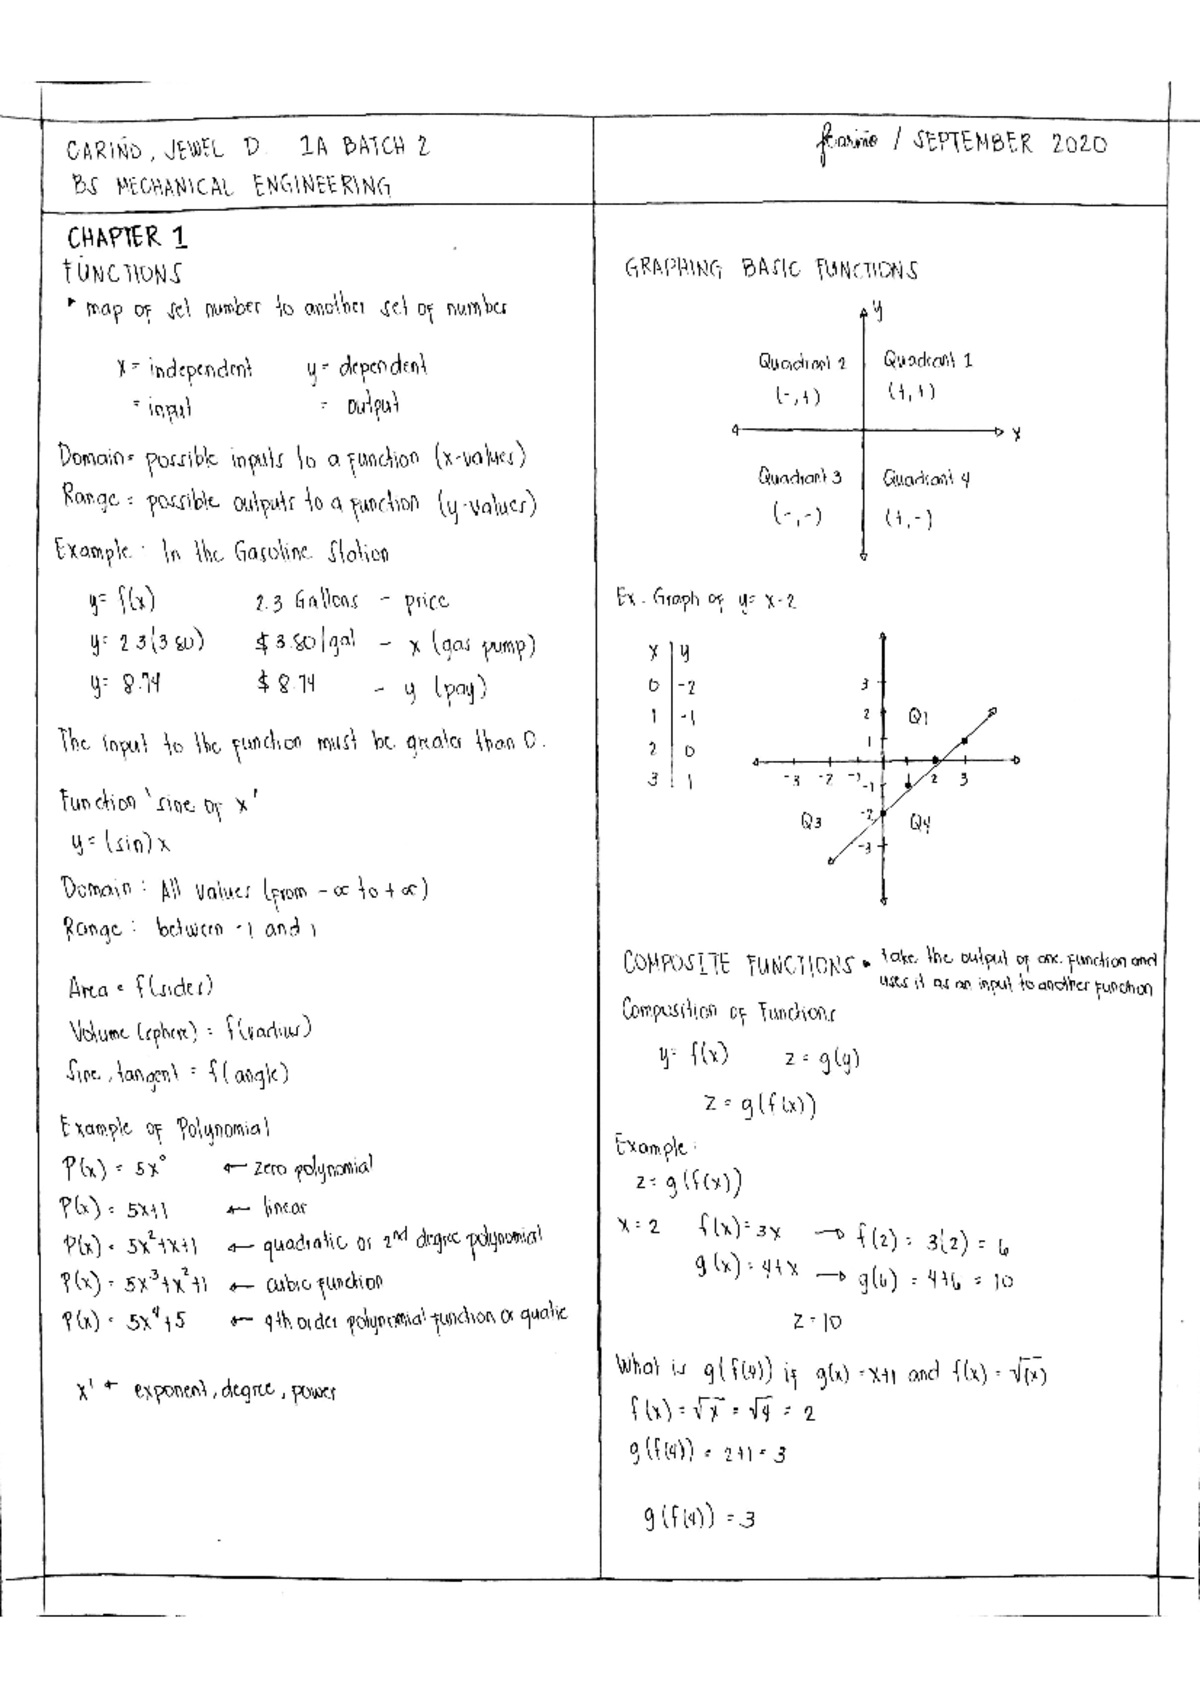 CARIÑO, JEWEL D. 1A BATCH 2
BS MECHANICAL ENGINEERING
jcariño / SEPTEMBER 2020
CHAPTER 1
FUNCTIONS
* map of set number to another set of number
x = independent y = dependent
= input = output
Domain = possible inputs to a function (x-values)
Range = possible outputs to a function (y-values)
Example: In the Gasoline Station
y = f(x) 2.3 Gallons - price
y = 2.3(3.80) $3.80/gal - x (gas pump)
y = 8.74 $8.74 - y (pay)
The input to the function must be greater than 0.
Function 'sine of x'
y = (sin)x
Domain: All values (from -∝ to +∝)
Range: between -1 and 1
Area = f(sides)
Volume (sphere) = f(radius)
Sine, tangent = f(angle)
Example of Polynomial
P(x) = 5x⁰ ← zero polynomial
P(x) = 5x+1 ← linear
P(x) = 5x²+x+1 ← quadratic or 2nd degree polynomial
P(x) = 5x³+x²+1 ← cubic function
P(x) = 5x⁴+5 ← 4th order polynomial function or quatic
x¹ ← exponent, degree, power
GRAPHING BASIC FUNCTIONS
y
Quadrant 2 Quadrant 1
(-,+) (+,+)
x
Quadrant 3 Quadrant 4
(-,-) (+,-)
Ex. Graph of y = x-2
x y
0 -2
1 -1
2 0
3 1
3
2 Q1
1
-3 -2 -1 1 2 3
-1
-2
Q3 Q4
-3
COMPOSITE FUNCTIONS • take the output of one function and
uses it as an input to another function
Composition of Functions
y = f(x) z = g(y)
z = g(f(x))
Example:
z = g(f(x))
x = 2 f(x) = 3x → f(2) = 3(2) = 6
g(x) = 4+x → g(6) = 4+6 = 10
z = 10
What is g(f(4)) if g(x) = x+1 and f(x) = √(x)
f(x) = √x = √4 = 2
g(f(4)) = 2+1 = 3
g(f(4)) = 3